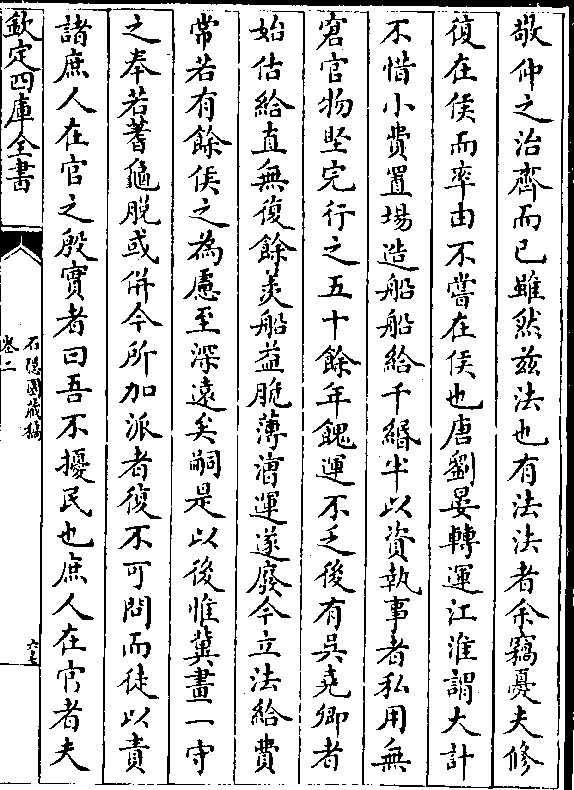 敬仲之治齊而已雖然兹法也有法法者余竊憂夫修
復在侯而率由不嘗在侯也唐劉晏轉運江淮謂大計
不惜小費置場造船船給千緡半以資執事者私用無
窘官物堅完行之五十餘年餽運不乏後有吳堯卿者
始估給直無復餘羡船益脆薄漕運遂廢今立法給費
常若有餘侯之為慮至深遠矣嗣是以後惟冀畫一守
之奉若蓍龜脱或併今所加派者復不可問而徒以責
諸庶人在官之殷實者曰吾不擾民也庶人在官者夫
欽定四庫全書
石隱園藏稿
卷二